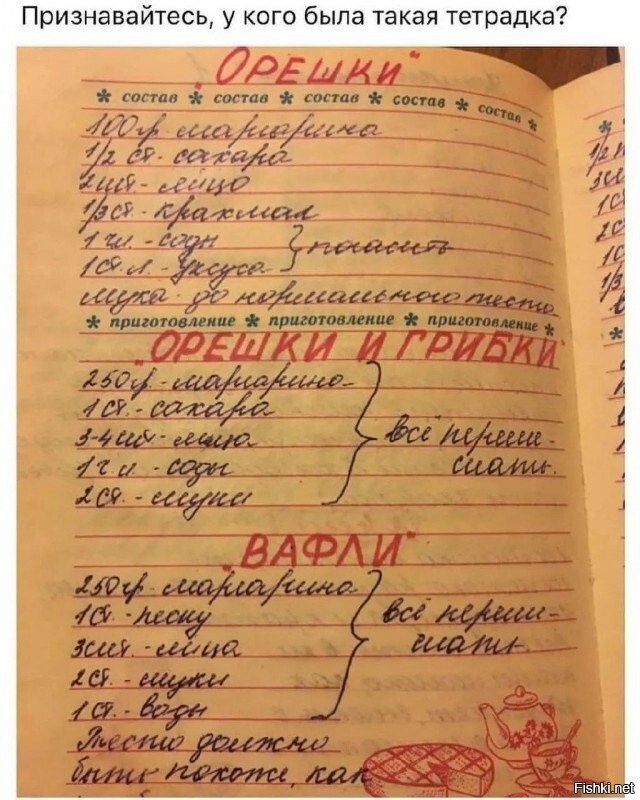 Признавайтесь, у кого была такая тетрадка?
„ОРЕШКИ"
* состав * состав * состав * состав * состав *
100 гр. маргарина
1/2 ст. сахара
2 шт. - яйцо
1/3 ст. - крахмал
1 ч.л. - соды } погасить
1 ст. л. - уксуса
мука - до нормального теста
* приготовление * приготовление * приготовление *
„ОРЕШКИ И ГРИБКИ"
250 гр. - маргарина
1 ст. - сахара
3-4 шт. - яйца } всё переме-
1 ч л. - соды шать.
2 ст. - муки
„ВАФЛИ"
250 гр. - маргарина
1 ст. - песку } всё переме-
3 шт. - яйца шать.
2 ст. - муки
1 ст. - воды
Тесто должно
быть похоже, как
Fishki.net